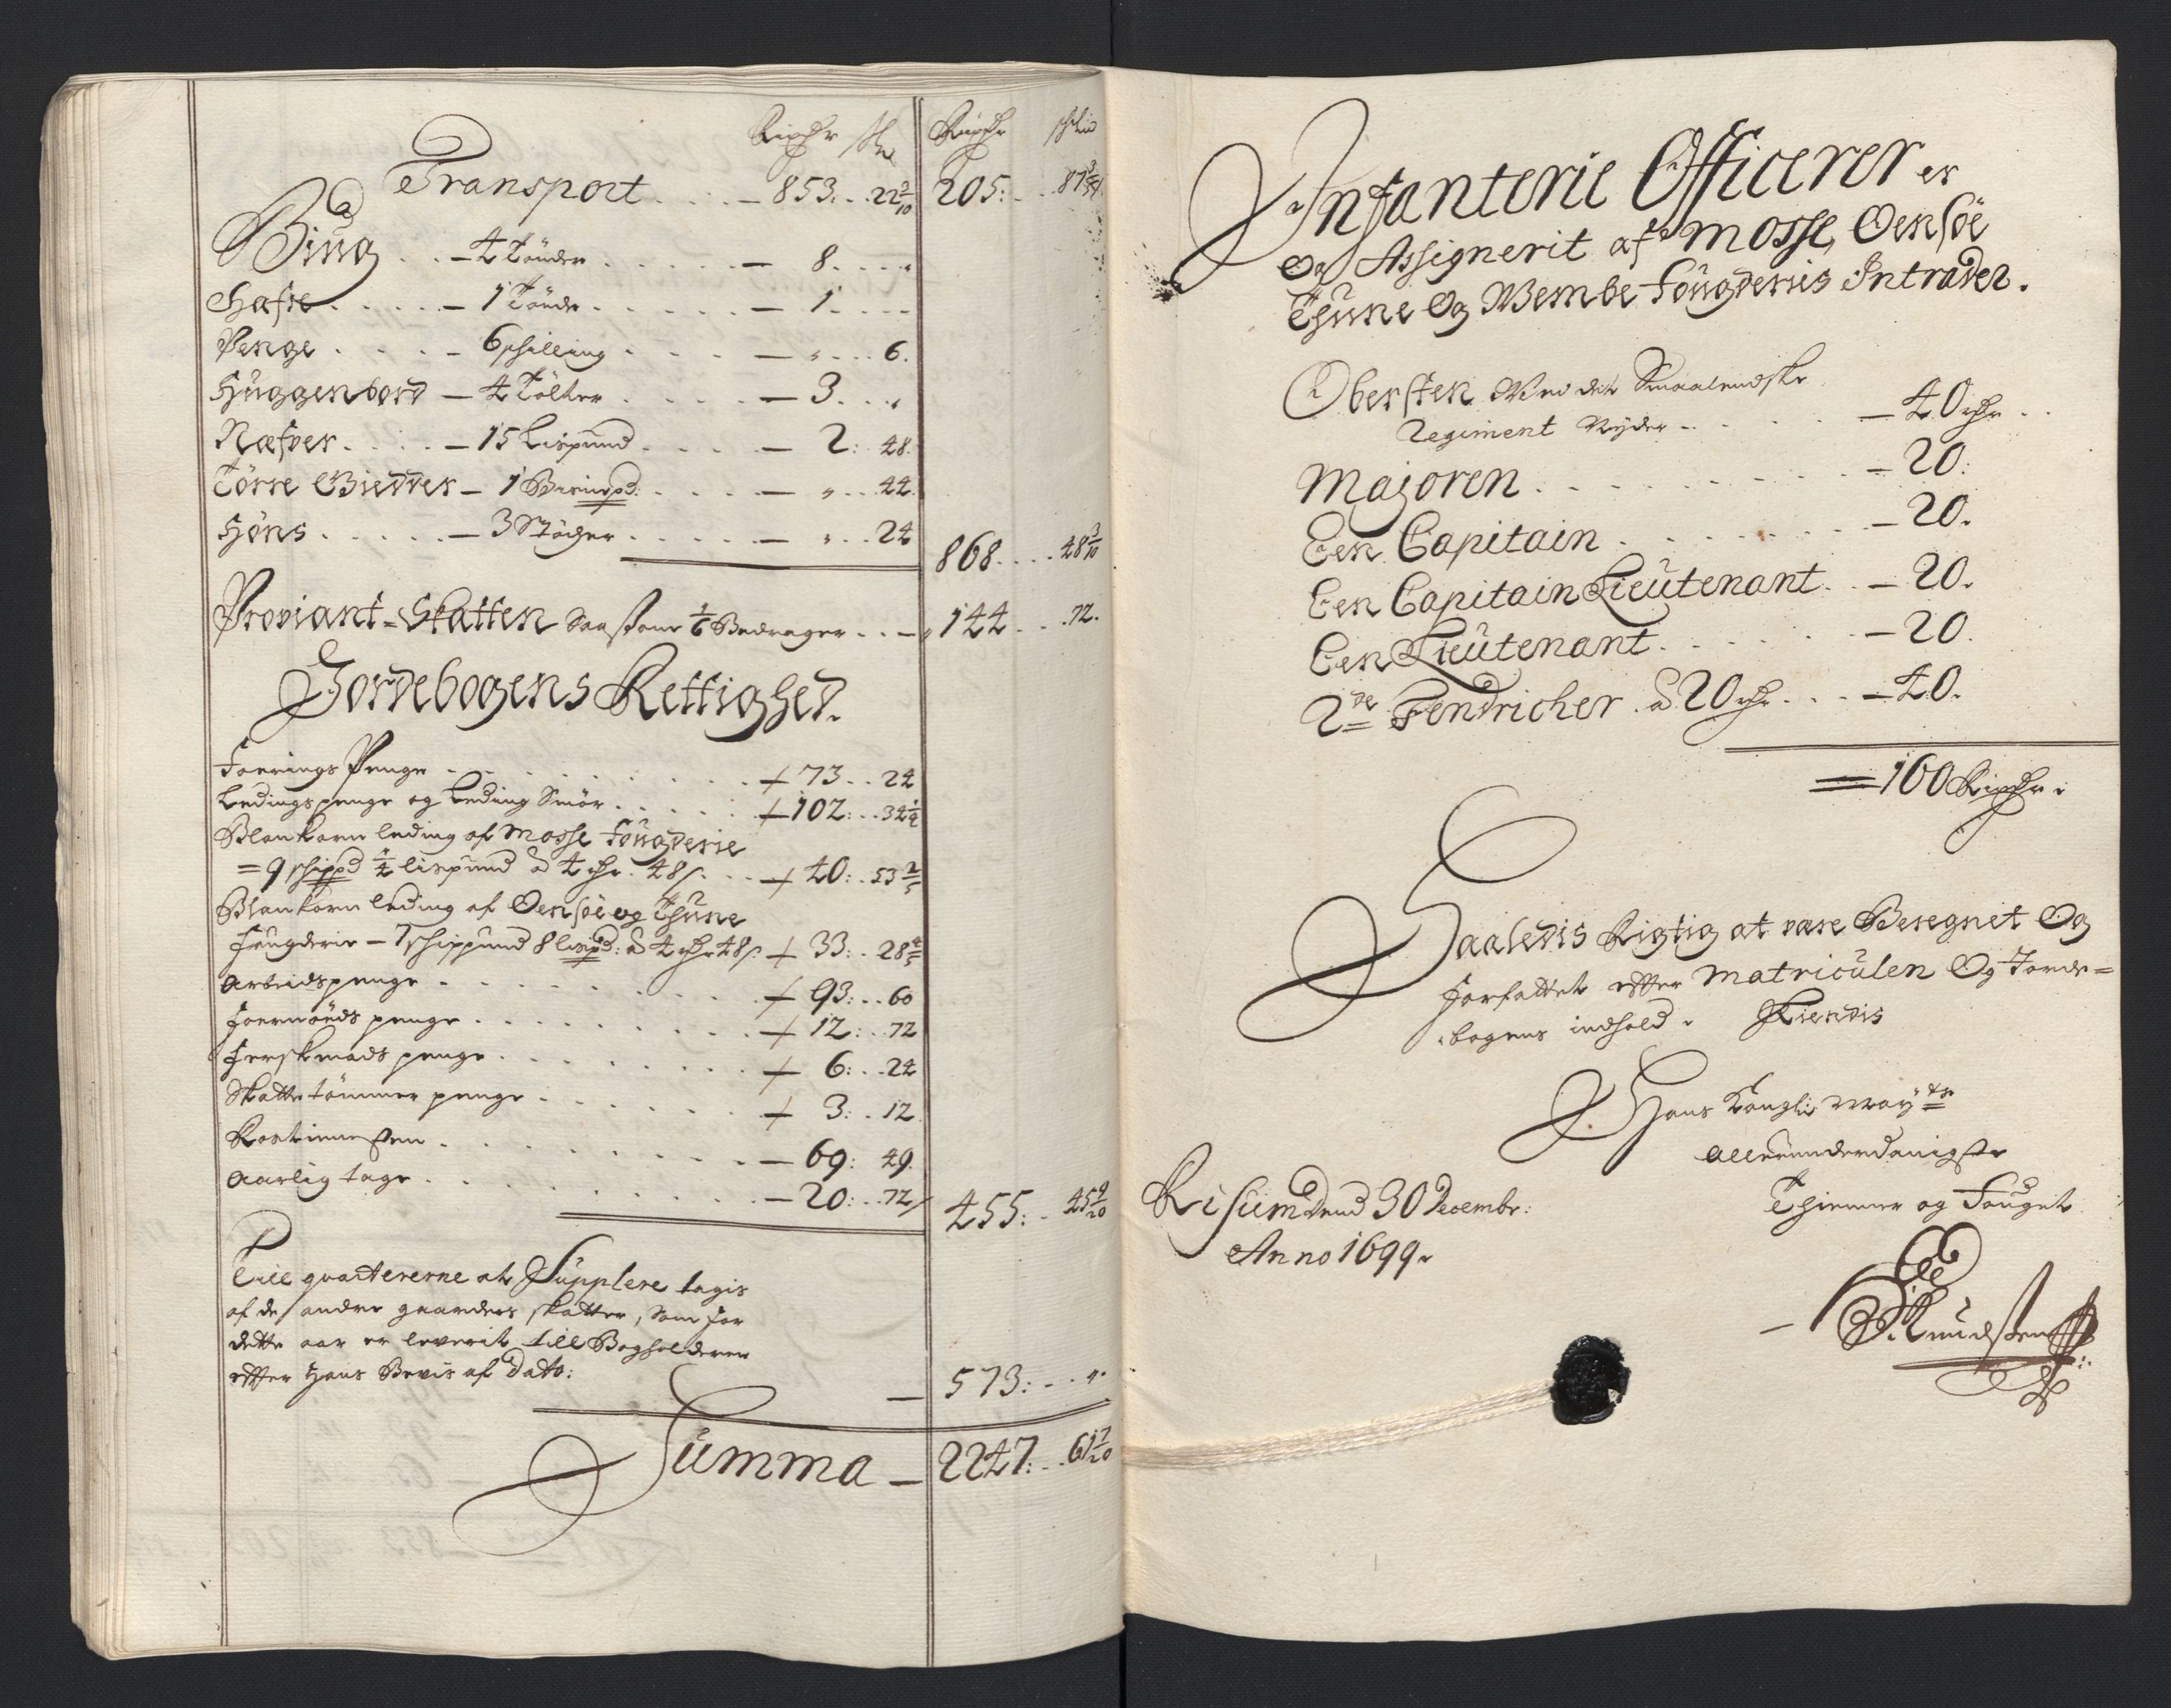 Rixdr ß Rixdr schill
Transport - 853. 22 9/10 205: 87
Biug - 4 Tönder - 8.
Hafre - 1 Tönde - 1.
Penge - 6 schilling - " 6.
Huggenbord - 4 Tölter - 3.
Næfver - 15 Lispund - 2: 48.
Törre Giedder - 1 Bismrpd: - " 44.
Höns - 3 Støcher - " 24
868. 48 3/10
Proviant-Skatten 1/6 Bedrager - 144. 72.
Jordebogens Rettighed.
Foerings Penge 73. 24
Ledings penge og Leding Smör 102: 34 1/4
Blankorn leding af Mosse Fougderie
= 9 schippd 1/4 lispund à 4 rdr. 48 ß. 40: 53 2/5
Blankorn leding af Oensöe og Thune
Fougderie - 7 schippund 8 lispd: à 4 rdr 48 ß. 33: 28 4/5
Arbeidspenge 93: 60
Foernöeds penge 12: 72
Ferskmads penge 6: 24
Skatte tömmer penge 3: 12.
- 69: 49.
Aarlig tage - 20: 72
455: 45 9/20
Till quarterene at Supplere tagis
af de andre gaarders skatter, som for
dette aar er leverit till Bogholderen
effter Hans Bevis af Dato:
- 573: "
Summa - 2247: 61 17/20
Infanterie Officerer er
Og Assignerit af Mosse, Oensöe
Thune Og Wembe Fougderies Intrader.
Obersten Ved det Smaalendske
Regiment Nyder - 40 rdr
Majoren - 20:
Een Capitain - 20.
Een Capitain Lieutenant - 20.
Een Lieutenant - 20.
2de Fendricher à 20 rdr - 40.
= 160 Rixdr
Saaledis Rigtig at være Beregnet Og
forfattet effter Matriculen Og Jorde=
bogens indhold. Kiendis
Hans Kongls Mayts
allerunderdanigste
Thienner og Fouget
Risum dend 30 Decembr:
Anno 1699.
Knudsten